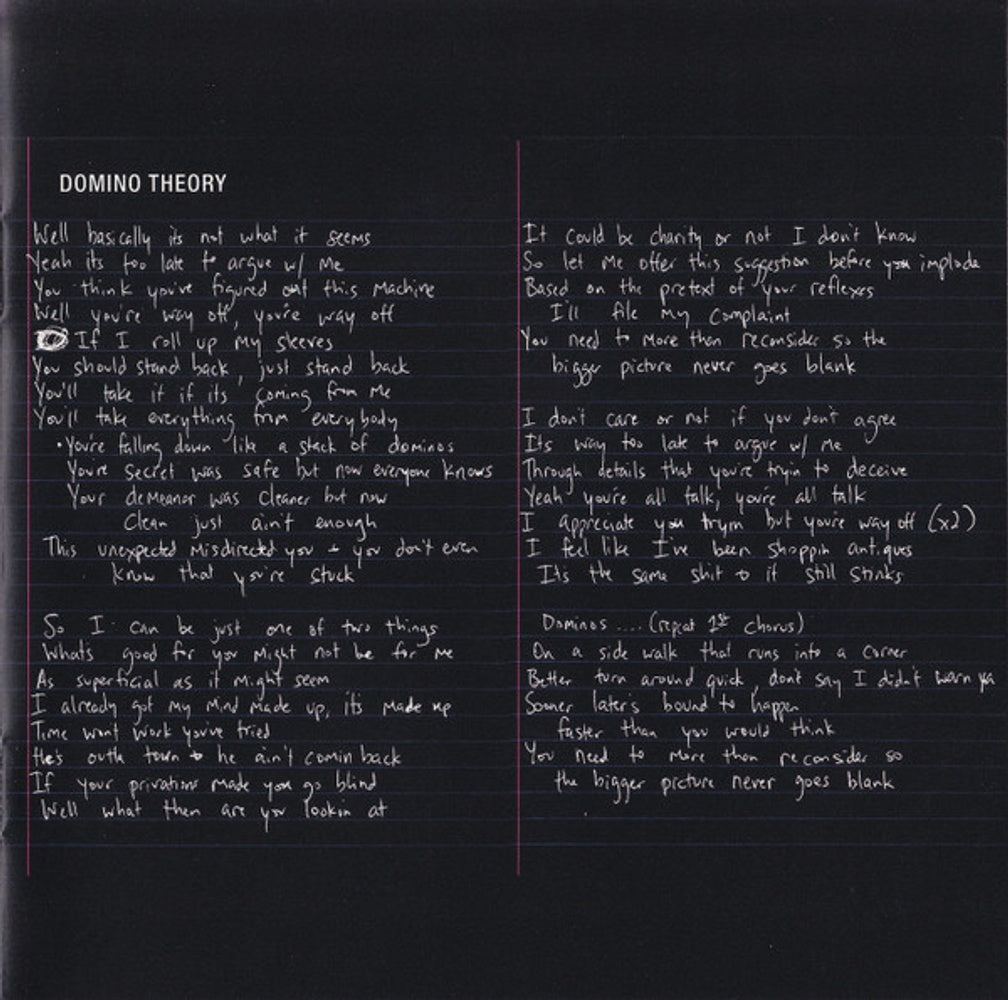 DOMINO THEORY
Well basically its not what it seems
Yeah its too late to argue w/ me
You think you've figured out this machine
Well you're way off, you're way off
If I roll up my sleeves
You should stand back, just stand back
You'll take it if its coming from me
You'll take everything from everybody
You're falling down like a stack of dominos
You're secret was safe but now everyone knows
Your demeanor was cleaner but now
Clean just ain't enough
This unexpected misdirected you + you don't even
know that you're stuck
So I can be just one of two things
Whats good for you might not be for me
As superficial as it might seem
I already got my mind made up, it's made up
Time wont work you've tried
He's outta town + he ain't comin back
If your privations made you go blind
Well what then are you lookin at
It could be charity or not I don't know
So let me offer this suggestion before you implode
Based on the pretext of your reflexes
I'll file my complaint
You need to more than reconsider so the
bigger picture never goes blank
I don't care or not if you don't agree
Its way too late to argue w/ me
Through details that you're tryin to deceive
Yeah you're all talk, you're all talk
I appreciate you tryin but you're way off (x2)
I feel like I've been shoppin antiques
It's the same shit + it still stinks
Dominos .... (repeat 1st chorus)
On a side walk that runs into a corner
Better turn around quick, dont say I didn't warn ya
Sooner later's bound to happen
faster than you would think
You need to more than reconsider so
the bigger picture never goes blank